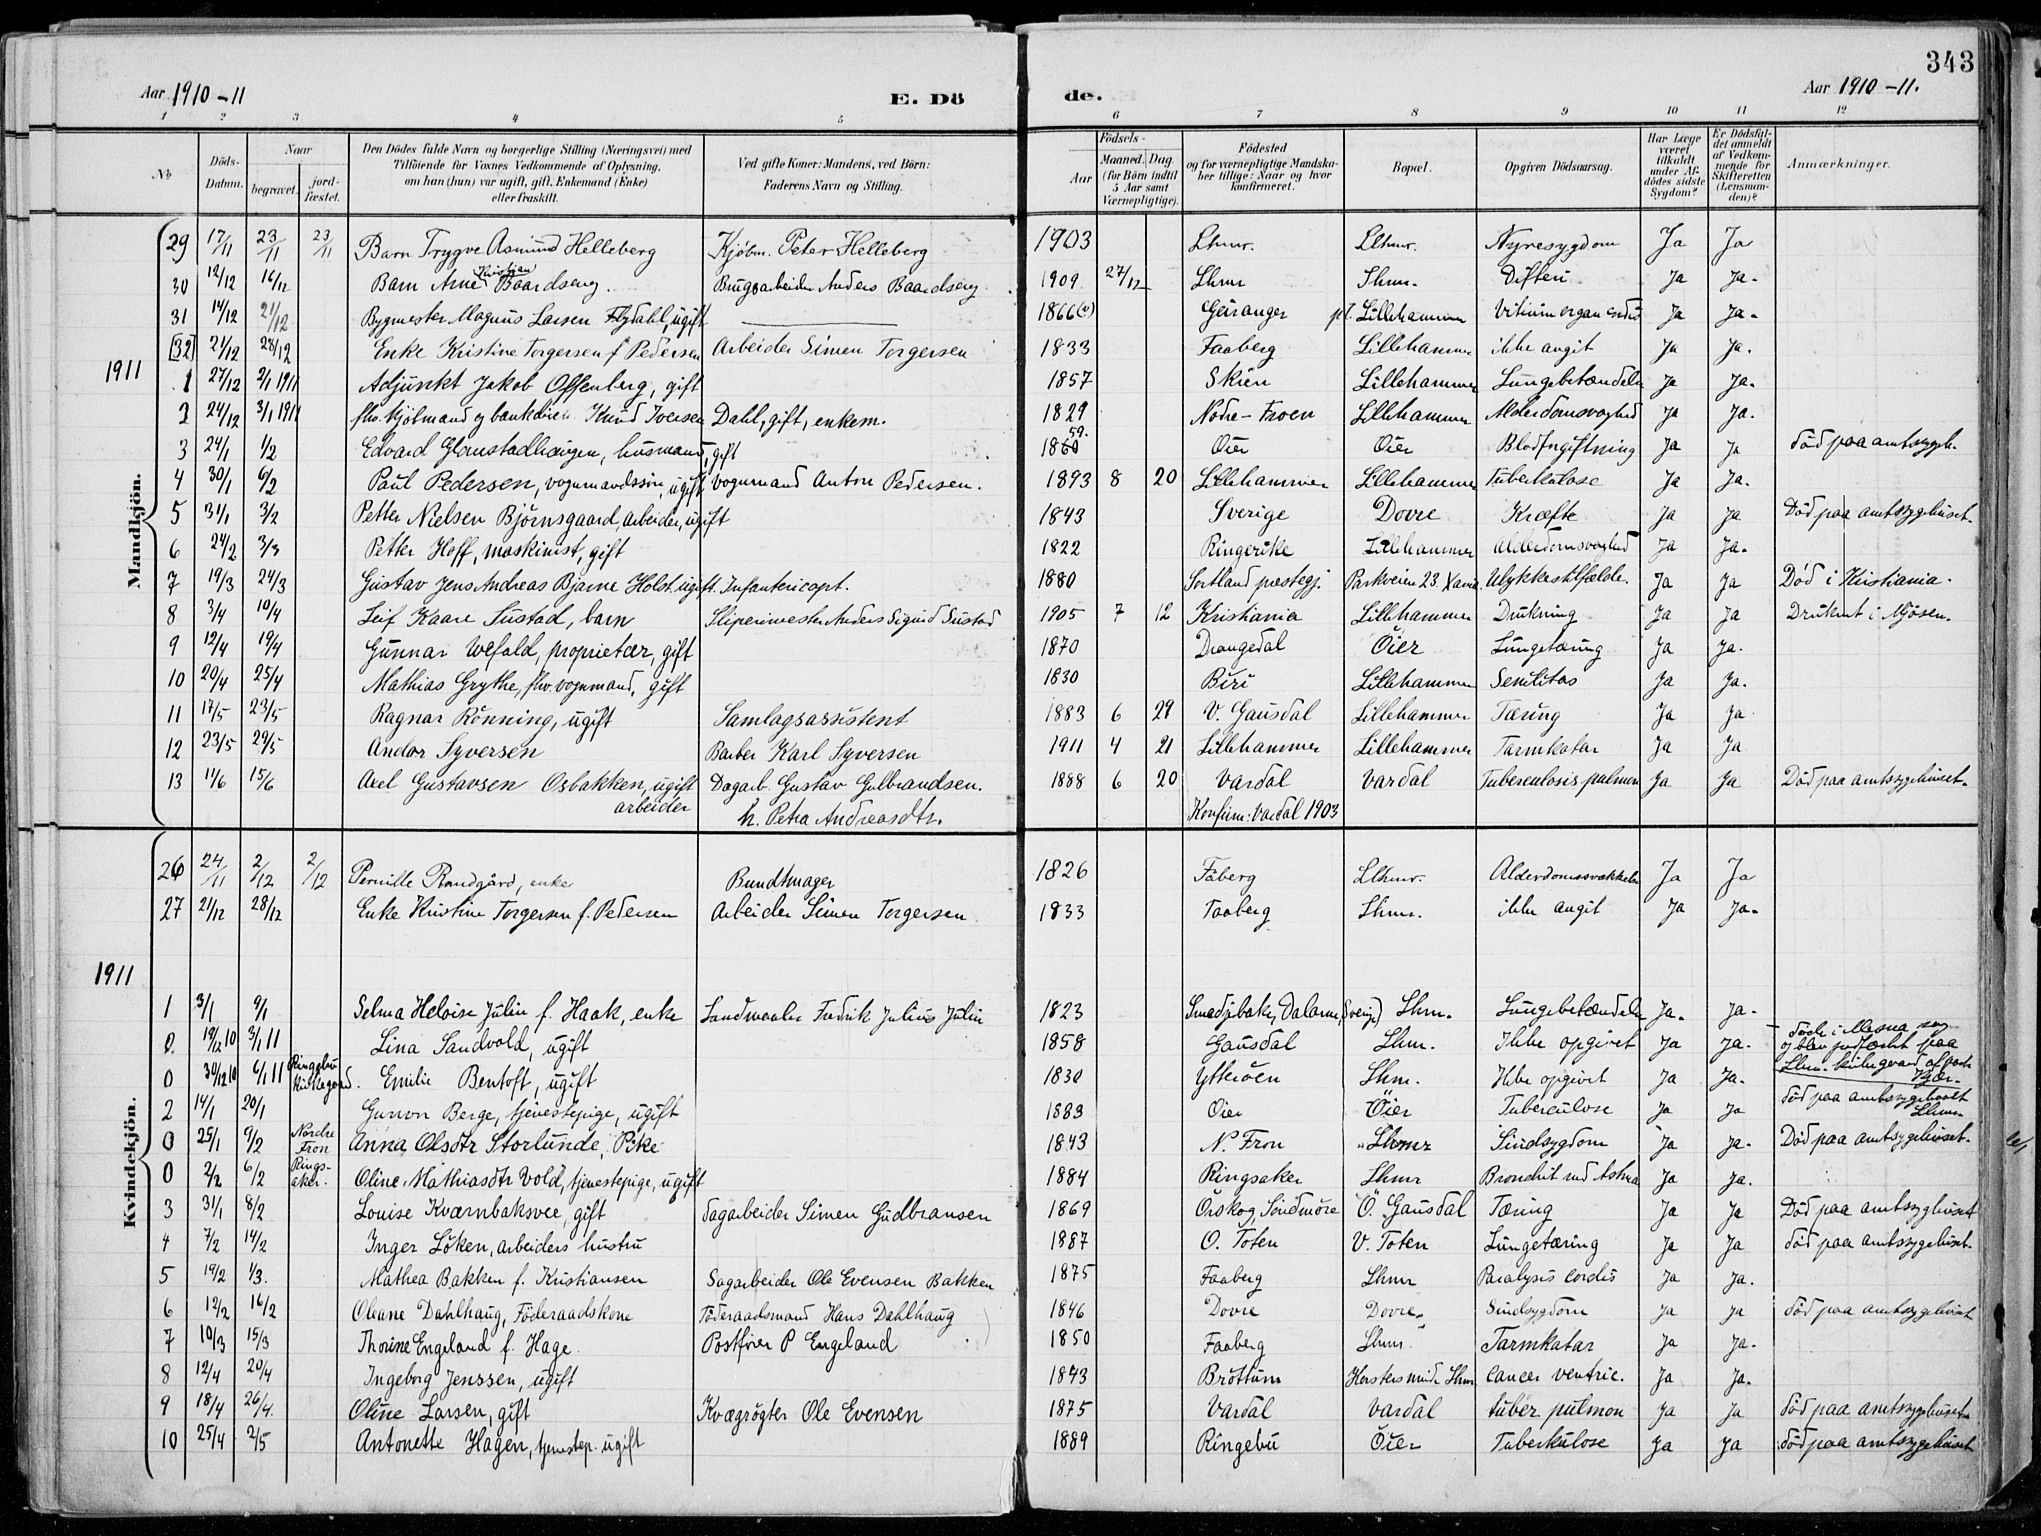 343
Aar 1910-11
E. Dö
de.
Aar 1910-11.
1 2 3 4 5 6 7 8 9 10 11 12
№
Döds-Datum.
Naar
begravet.
jord-fæstet.
Den Dödes fulde Navn og borgerlige Stilling (Næringsvei) med
Tilföiende for Voxnes Vedkommende af Oplysning,
om han (hun) var ugift, gift, Enkemand (Enke)
eller fraskilt.
Ved gifte Koner: Mandens, ved Börn:
Faderens Navn og Stilling.
Födsels-
Aar
Maaned. Dag.
(for Börn indtil
5 Aar samt
Værnepligtige).
Födested
og for værnepligtige Mandska-
ber tillige: Naar og hvor
konfirmeret.
Bopæl.
Opgiven Dödsaarsag.
Har Læge
været
tilkaldt
under Af-
dödes sidste
Sygdom?
Er Dödsfal-
det anmeldt
af Vedkom-
mende for
Skifteretten
(Lensman-
den)?
Anmærkninger.
Mandkjön.
29 17/11 23/11 23/11 Barn Trygve Asmund Helleberg Kjøbm. Peter Helleberg 1903 Lhmr. Llhmr. Nyresygdom Ja Ja
Kristian
30 12/12 16/12 Barn Arne Baardseng. Brugsarbeider Anders Baardseng 1909 27/12 Lhmr Lhmr. Difteri Ja Ja.
31 14/12 21/12 Bygmester Magnus Larsen Flydahl, ugift 1866 Geiranger Lillehammer Vitium organ cordis Ja Ja.
[32] 21/12 28/12 Enke Kristine Torgersen f. Pedersen Arbeider Simen Torgersen 1833 Faaberg Lillehammer ikke angit Ja Ja.
1911
1 27/12 2/1 1911 Adjunkt Jakob Offenberg, gift 1857 Skien Lillehammer Lungebetændelse Ja Ja.
2 24/12 3/1 1911 fhv. kjøbmand og bankdirek. Knud Iversen Dahl, gift, enkem. 1829 Nodre-Froen Lillehammer Alderdomsvaghed Ja Ja.
59.
3 24/1 1/2 Edvard Glomstadhaugen, husmand, gift 1860 Oier Oier Blodforgiftning Ja Ja Död paa amtssygeh.
4 30/1 6/2 Paul Pedersen, vognmandssøn, ugift Vognmand Anton Pedersen. 1893 8 20 Lillehammer Lillehammer Tuberkulose Ja Ja.
5 31/1 3/2 Petter Nielsen Björnsgaard, arbeider, ugift 1843 Sverige Dovre Kræfte Ja Ja Död paa amtssygehuset.
6 24/2 3/3 Petter Hoff, maskinist, gift 1822 Ringerike Lillehammer Alderdomsvaghed Ja Ja.
7 19/3 24/3 Gustav Jens Andreas Bjarne Holst. ugift. Infantericapt. 1880 Sortland prestegj. Parkveien 23. Ulykkestilfælde. Ja Ja Död i Kristiania.
8 3/4 10/4 Leif Kaare Sustad, barn Sliperimester Anders Sigurd Sustad 1905 7 12 Kristiania Lillehammer Drukning Ja Ja Druknet i Mjösen.
9 12/4 19/4 Gunnar Wefald, proprietær, gift 1870 Drangedal Öier Lungetæring Ja Ja.
10 20/4 25/4 Mathias Grythe, fhv. vognmand, gift 1830 Biri Lillehammer Senilitas Ja Ja.
11 17/5 23/5 Ragnar Rönning, ugift Samlagsassistent 1883 6 29 V. Gausdal Lillehammer Tæring Ja Ja
12 23/5 29/5 Andor Syversen Barber Karl Syversen 1911 4 21 Lillehammer Lillehammer Tarmkatar Ja Ja
13 11/6 15/6 Axel Gustavsen Osbakken, ugift Dagarb. Gustav Gulbrandsen. 1888 6 20 Vardal Vardal Tuberculosis pulmon Ja Ja Död paa amtssygehuset.
arbeider h. Petra Andreasdtr. Konfirm: Vardal 1903
Kvindekjön.
26 24/11 2/12 2/12 Pernille Randgård, enke Bundtmager 1826 Fåberg Llhmr. Alderdomssvækkelse Ja Ja
27 21/12 28/12 Enke Kristine Torgersen f. Pedersen Arbeider Simen Torgersen 1833 Faaberg Lhmr. ikke angit Ja Ja.
1911
1 3/1 9/1 Selma Heloise Julin f. Haak, enke Landmaaler Fredrik Julius Julin 1823 Smedjebake, Dalarne, (Sverige) Lhm. Lungebetændelse Ja. Ja.
0. 19/12 10 3/1 11 Lina Sandvold, ugift 1858 Gausdal Lhm. Ikke opgivet Ja Ja. Døde i Mesna og blev jordfæstet paa Lhm. kirkegaard af
0 30/12 10 6/1 11 Ringebu kirkegaard. Emilie Bentoft, ugift 1830 Ytterøen Lhm. Ikke opgivet Ja Ja.
2 14/1 20/1 Gunvor Berge, tjenestepige, ugift 1883 Oier Öier Tuberculose Ja Ja Död paa amtssygehuset Lhmr
0 25/1 9/2 Nordre Fron Anna Olsdtr Storlunde, Pike 1843 N. Fron Lhmr Sindsygdom Ja Ja. Död paa amtssygehuset.
0 2/2 6/2 Rings-aker. Oline Mathiasdtr Vold, tjenestepige, ugift 1884 Ringsaker Lhmr Bronchit med Astma Ja Ja.
3 31/1 8/2 Louise Kværnbaksvee, gift Dagarbeider Simen Gudbransen 1869 Örskog, Söndmöre Ö. Gausdal Tæring Ja Ja Död paa amtssygehuset
4 7/2 14/2 Inger Löken, arbeiders hustru 1887 O. Toten V. Toten Lungetæring Ja Ja Död paa amtssygehuset.
5 19/2 1/3. Mathea Bakken f. Kristiansen Sagarbeider Ole Evensen Bakken 1875 Faaberg Lhmr Paralysis cordis Ja Ja.
6 12/2 16/2 Oleane Dahlhaug, Föderaadskone Föderaadsmand Hans Dahlhaug 1846 Dovre Dovre Sindsygdom Ja Ja Död paa amtssygehuset
7 10/3 15/3 Thorine Engeland f. Hage. Postfører P Engeland 1850 Faaberg Lhmr Tarmkatar Ja Ja.
8 12/4 20/4 Ingeborg Jenssen, ugift 1843 Bröttum Lhmr Cancer ventric. Ja Ja.
9 18/4 26/4. Oline Larsen, gift Kvægrögter Ole Evensen 1875 Vardal Vardal tuber pulmon Ja Ja Död paa amtssygehuset
10 25/4 2/5 Antonette Hagen, tjenestep. ugift 1889 Ringebu Öier Tuberkulose Ja Ja Död paa amtssygehuset